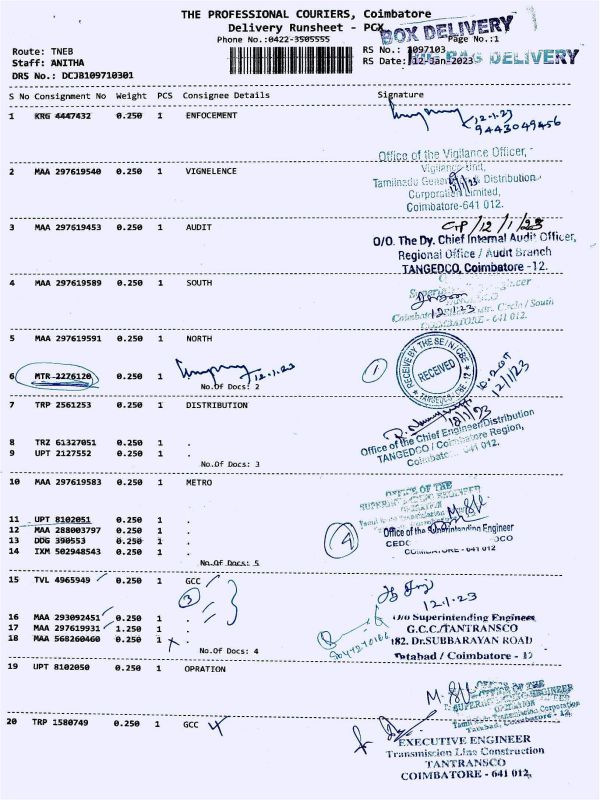 THE PROFESSIONAL COURIERS, Coimbatore
Delivery Runsheet - PCX
BOX DELIVERY
Phone No.:0422-3505555
Page No.:1
Route: TNEB
RS No.: 1097103
Staff: ANITHA
RS Date: 12-Jan-2023
BIG BAG DELIVERY
DRS No.: DCJB109710301
S No Consignment No Weight PCS Consignee Details Signature
1 KRG 4447432 0.250 1 ENFOCEMENT
12-1-23
9443049456
Office of the Vigilance Officer,
2 MAA 297619540 0.250 1 VIGNELENCE
Vigilance Unit,
Tamilnadu Distribution
Corporation Limited,
Coimbatore-641 012.
3 MAA 297619453 0.250 1 AUDIT
12/1/23
O/O. The Dy. Chief Internal Audit Officer,
Regional Office / Audit Branch
TANGEDCO, Coimbatore -12.
4 MAA 297619589 0.250 1 SOUTH
Engineer
12.1.23
Circle / South
COIMBATORE - 641 012.
5 MAA 297619591 0.250 1 NORTH
RECEIVED
6 MTR 2276120 0.250 1
12.1.23
No.Of Docs: 2
1
12/1/23
7 TRP 2561253 0.250 1 DISTRIBUTION
Office of the Chief Engineer/Distribution
TANGEDCO / Coimbatore Region,
Coimbatore - 641 012.
8 TRZ 61327051 0.250 1 .
9 UPT 2127552 0.250 1 .
No.Of Docs: 3
10 MAA 297619583 0.250 1 METRO
OFFICE OF THE
SUPERINTENDING ENGINEER
11 UPT 8102051 0.250 1 .
12 MAA 288003797 0.250 1 .
13 DDG 390553 0.250 1 .
14 IXM 502948543 0.250 1 .
Office of the Superintending Engineer
COIMBATORE - 641 012
4
No.Of Docs: 5
15 TVL 4965949 0.250 1 GCC
3
12-1-23
16 MAA 293092451 0.250 1 .
17 MAA 297619931 1.250 1 .
18 MAA 568260460 0.250 1 .
No.Of Docs: 4
O/o Superintending Engineer
G.C.C/TANTRANSCO
182. Dr.SUBBARAYAN ROAD
Tatabad / Coimbatore - 12
19 UPT 8102050 0.250 1 OPRATION
OFFICE OF THE
SUPERINTENDING ENGINEER
20 TRP 1580749 0.250 1 GCC
EXECUTIVE ENGINEER
Transmission Line Construction
TANTRANSCO
COIMBATORE - 641 012.